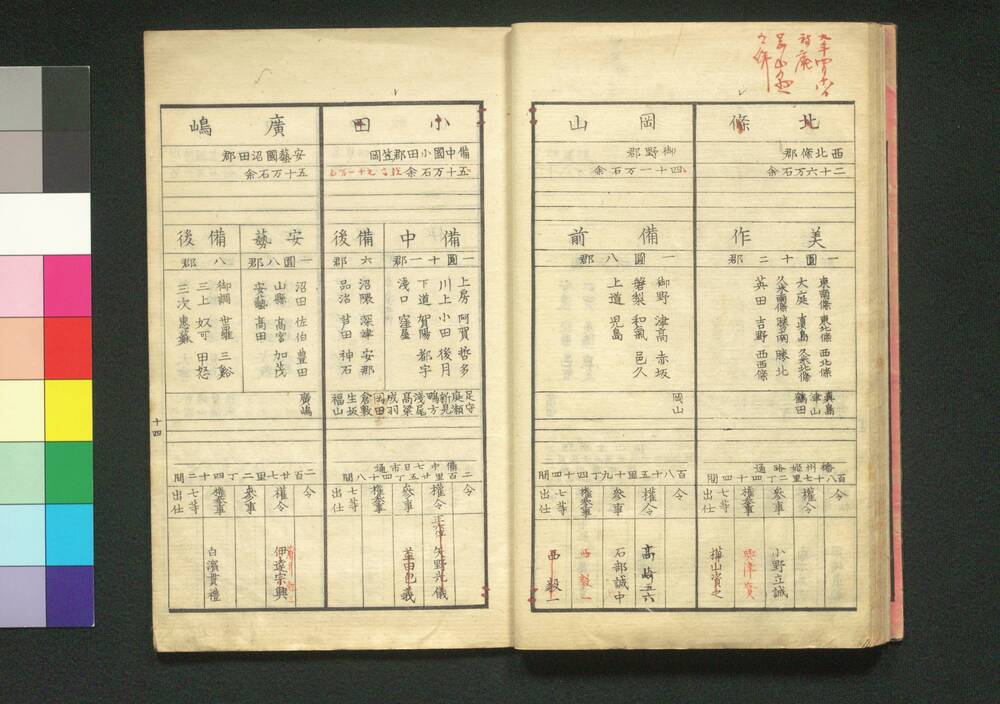 北條
西北條郡
二十六万石余
美作
一圓十二郡
東南條 東北條 西北條
大庭 真島 久米北條
久米南條 勝南 勝北
英田 吉野 西西條
真島
津山
鶴田
播州姫路通
百八十七里二丁四十四間
令
權令
參事 小野立誠
權參事
七等出仕
岡山
御野郡
四十一万石余
備前
一圓八郡
御野 津高 赤坂
磐梨 和氣 邑久
上道 児島
岡山
百八十五里十九丁四十四間
令
權令 高崎五六
參事 石部誠中
權參事 西毅一
七等出仕 西毅一
小田
備中國小田郡笠岡
五十万石余
備中
一圓十一郡
上房 阿賀 哲多
川上 小田 後月
下道 賀陽 都宇
淺口 窪屋
備後
六郡
沼隈 深津 安那
品治 芦田 神石
足守
庭瀬
新見
鴨方
淺尾
高梁
成羽
岡田
倉敷
生坂
福山
備中七日市通
二百里廿五丁四十八間
令
權令 矢野光儀
參事 益田包義
權參事
七等出仕
廣嶋
安藝國沼田郡
五十万石余
安藝
一圓八郡
沼田 佐伯 豊田
山縣 高宮 加茂
安藝 高田
備後
八郡
御調 世羅 三谿
三上 奴可 甲怒
三次 惠蘇
廣嶋
二百廿七里二丁四十二間
令
權令 伊達宗興
參事
權參事 白濱貫禮
七等出仕
十四